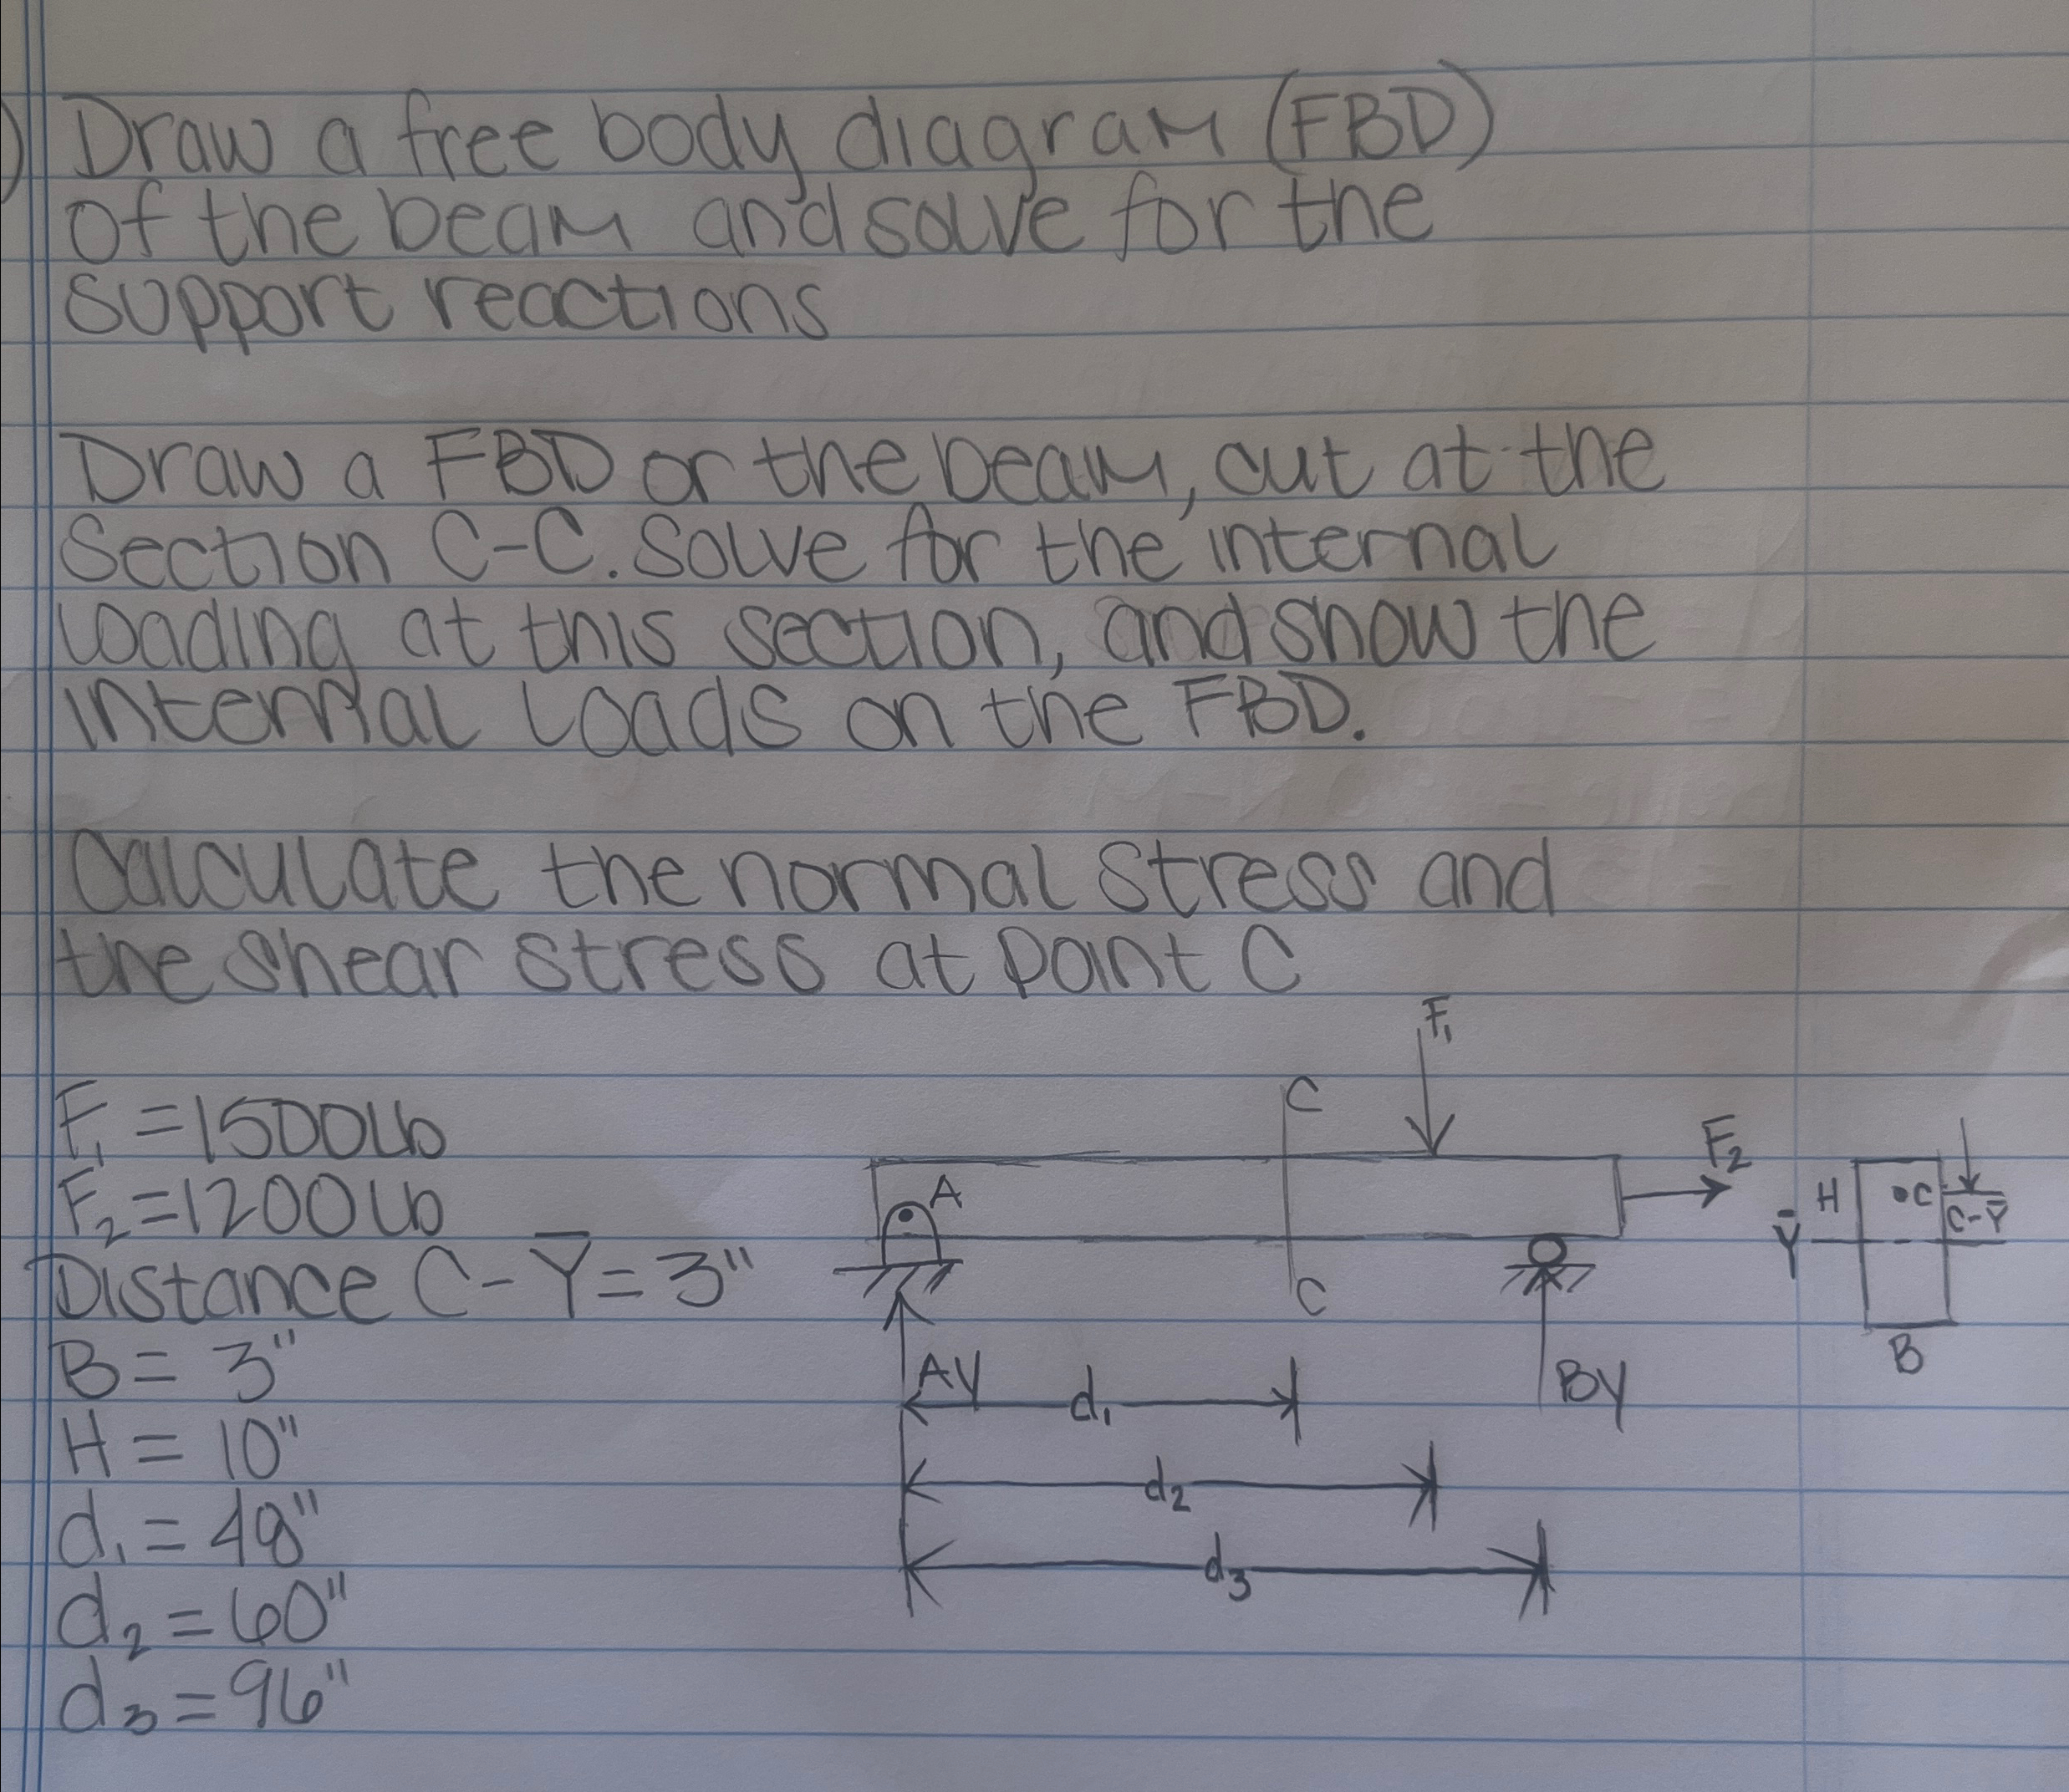 ) Draw a free body diagram (FBD)
of the beam and solve for the
support reactions
Draw a FBD or the beam, cut at the
Section C-C. Solve for the internal
loading at this section, and show the
internal loads on the FBD.
Calculate the normal stress and
the shear stress at point C
F₁ = 1500 lb
F₂ = 1200 lb
Distance C - Y̅ = 3"
B = 3"
H = 10"
d₁ = 48"
d₂ = 60"
d₃ = 96"
F₁
C
F₂
A
C
AY
BY
d₁
d₂
d₃
H
C
C-Y̅
Y̅
B